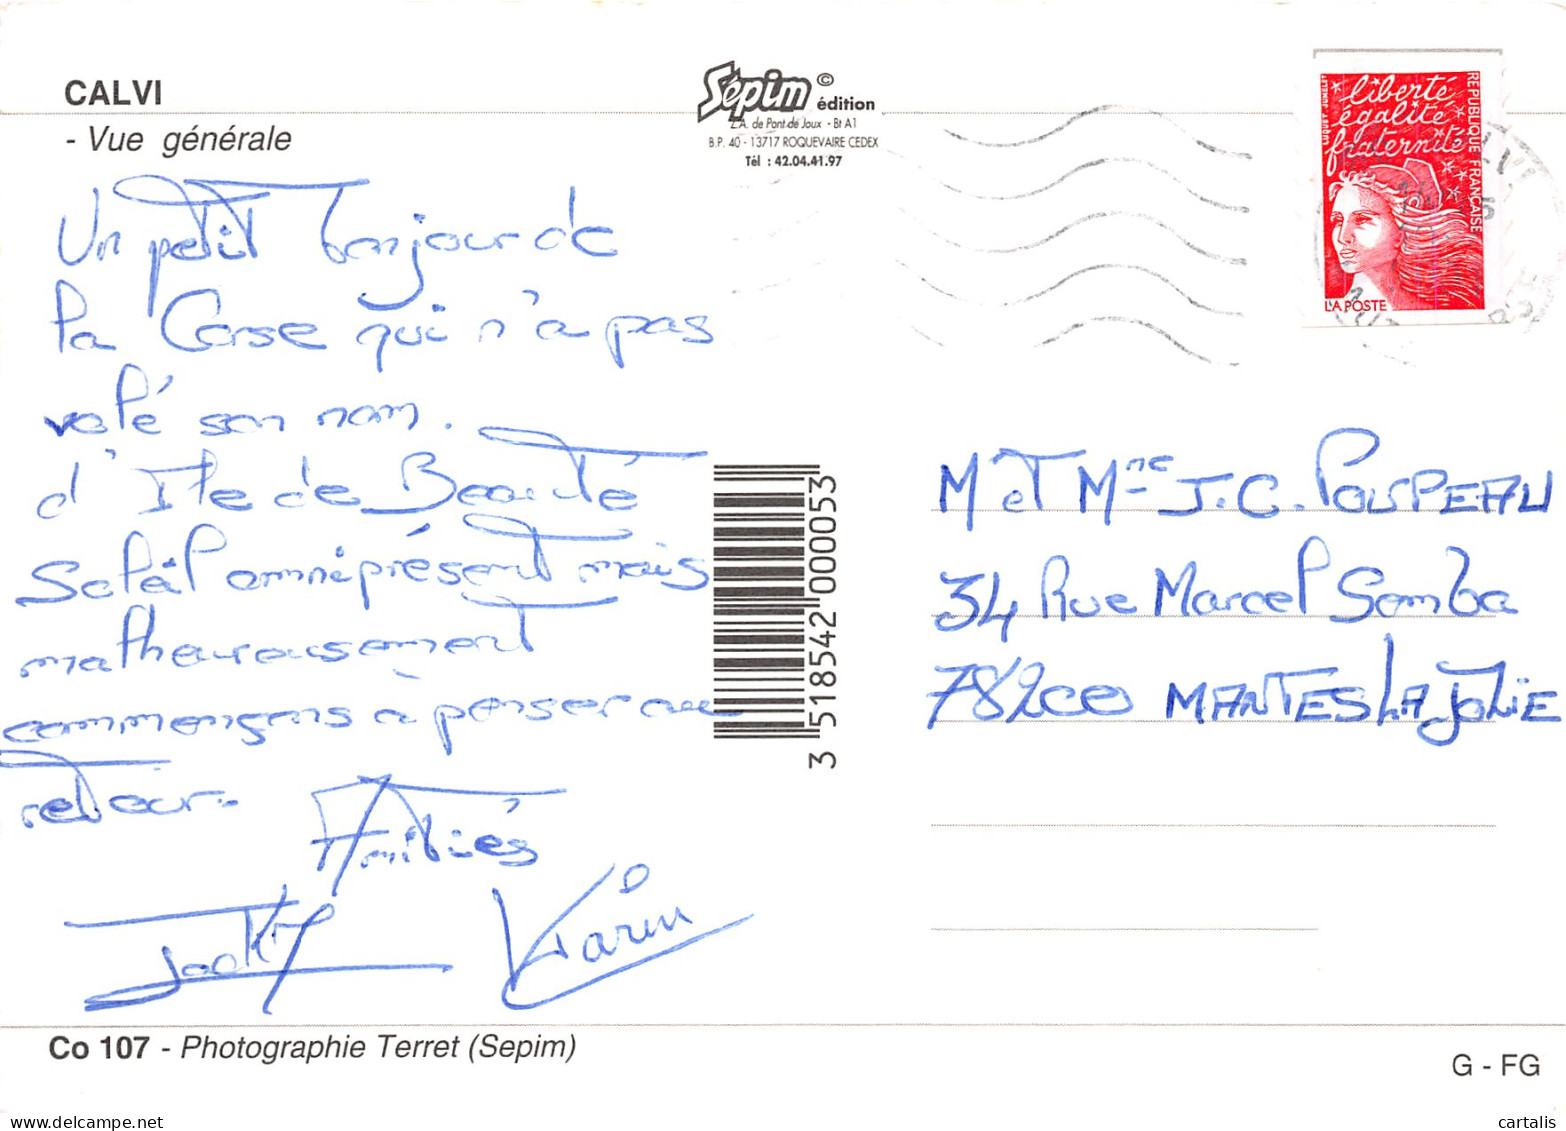 CALVI
- Vue générale
Sépim © édition
Z.A. de Pont de Joux - Bt A1
B.P. 40 - 13717 ROQUEVAIRE CEDEX
Tél : 42.04.41.97
liberté
égalité
fraternité
RÉPUBLIQUE FRANÇAISE
LA POSTE
Un petit bonjour de
la Corse qui n'a pas
volé son nom.
d'Ile de Beauté
Soleil omniprésent mais
malheureusement
commençons à penser au
retour.
Amitiés
Jacky Karin
3 518542 000053
M et Mme J.C. POUPEAU
34 Rue Marcel Semba
78200 MANTES LA JOLIE
Co 107 - Photographie Terret (Sepim)
G - FG
www.delcampe.net
cartalis